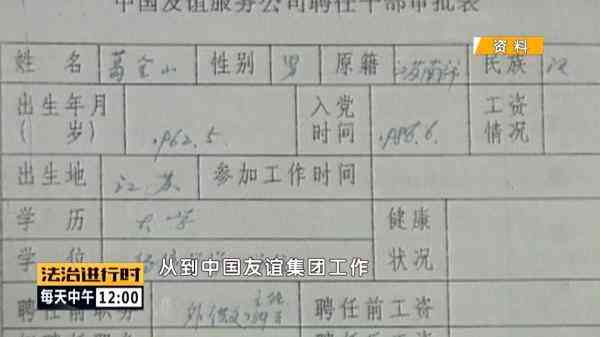 中国友谊服务公司聘任干部审批表
资料
姓 名 葛全山 性别 男 原籍 江苏 民族 汉
出生年月 1962.5. 入党 1988.6. 工资
( 岁) 时间 情况
出生地 江苏 参加工作时间
学 历 大学 健康
学 位 状况
从到中国友谊集团工作
法治进行时
每天中午 12:00
聘任前职务 聘任前工资